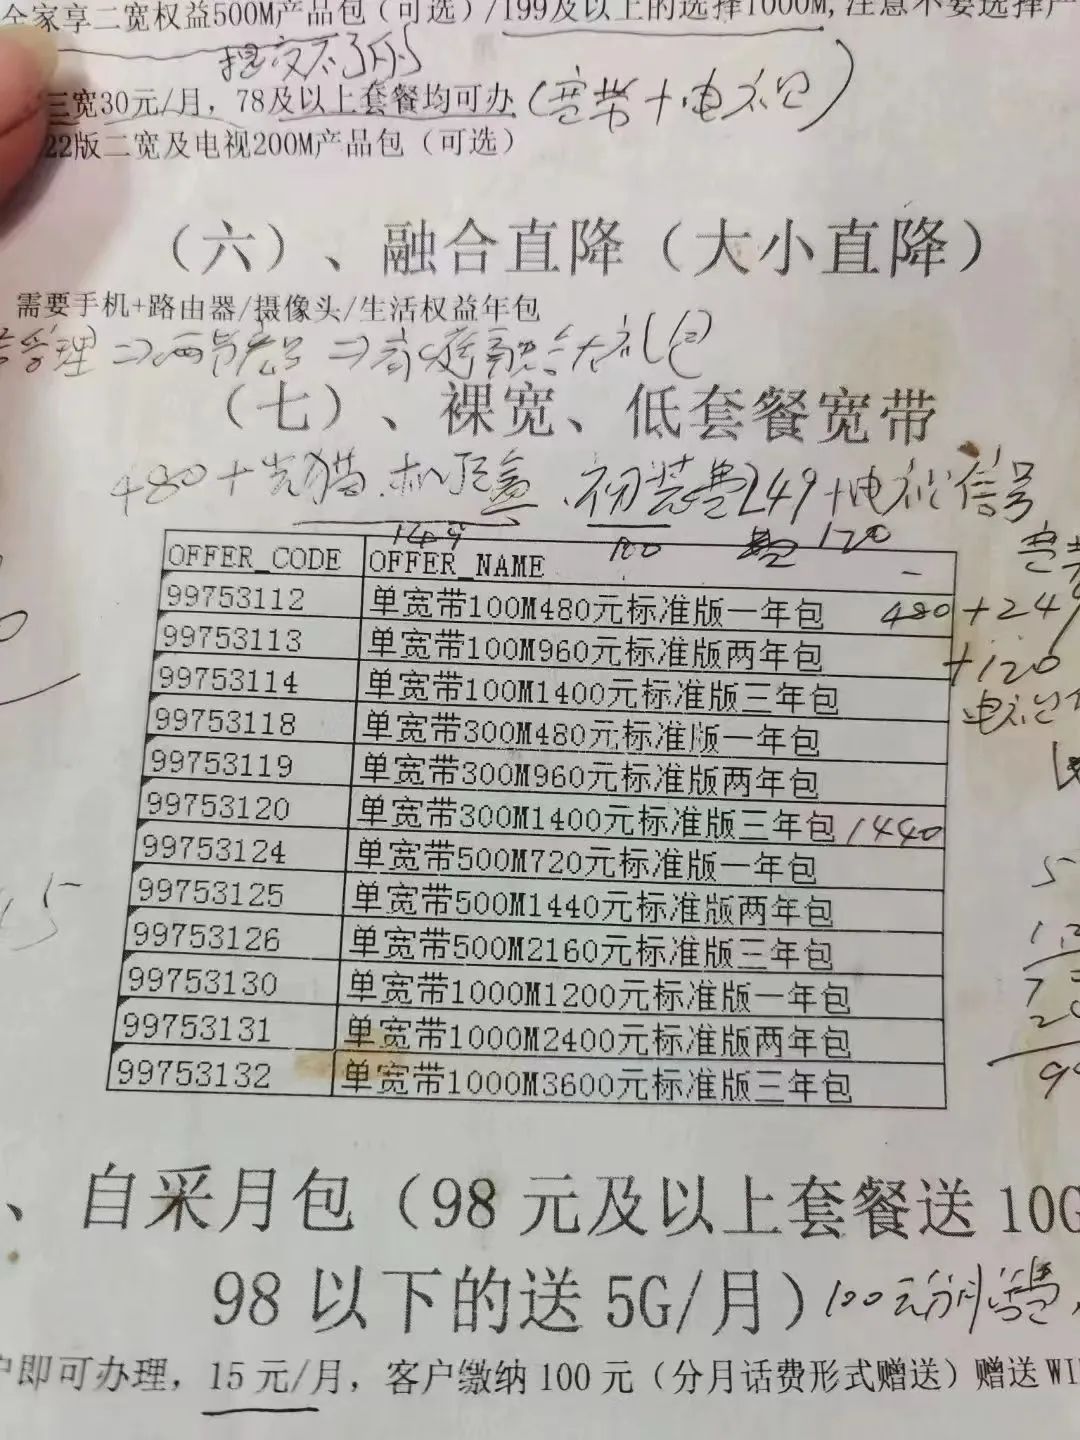 全家享二宽权益500M产品包（可选）/199及以上的选择1000M,注意不要选择
提交不了的
三宽30元/月，78及以上套餐均可办（宽带+电视）
22版二宽及电视200M产品包（可选）
（六）、融合直降（大小直降）
需要手机+路由器/摄像头/生活权益年包
管理⇒两节⇒家庭融合大礼包
（七）、裸宽、低套餐宽带
480+光猫、机顶盒、初装费249+电视信号
149 100 120
OFFER_CODE OFFER_NAME
99753112 单宽带100M480元标准版一年包 480+249
99753113 单宽带100M960元标准版两年包 +120
99753114 单宽带100M1400元标准版三年包 电视
99753118 单宽带300M480元标准版一年包
99753119 单宽带300M960元标准版两年包
99753120 单宽带300M1400元标准版三年包 1440
99753124 单宽带500M720元标准版一年包
99753125 单宽带500M1440元标准版两年包
99753126 单宽带500M2160元标准版三年包
99753130 单宽带1000M1200元标准版一年包
99753131 单宽带1000M2400元标准版两年包
99753132 单宽带1000M3600元标准版三年包
、自采月包（98元及以上套餐送10G
98以下的送5G/月）100元分月话费
户即可办理，15元/月，客户缴纳100元（分月话费形式赠送）赠送WI